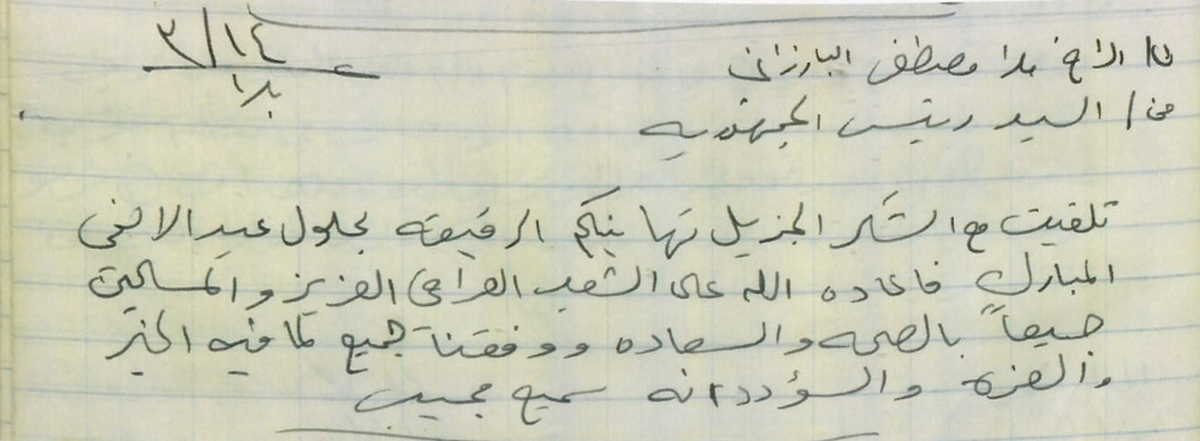 ١٤/٣
الى/ الاخ ملا مصطفى البارزاني
من/ السيد رئيس الجمهوريه
تلقيت مع الشكر الجزيل تهانيكم الرقيقه بحلول عيد الاضحى
المبارك فاعاده الله على الشعب العراقي العزيز والمسلمين
جميعاً بالصحه والسعاده ووفقنا جميع لما فيه الخير
والعزة والسؤدد انه سميع مجيب